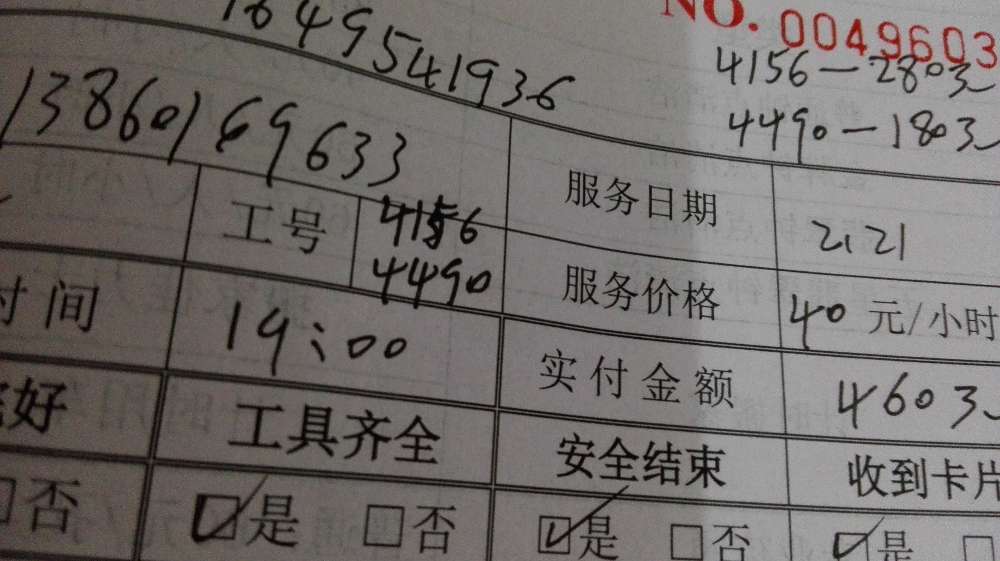 NO. 0049603
1649541936
4156-2803
13860169633
4490-1803
工号 4156 4490
服务日期 2.21
时间 19:00
服务价格 40 元/小时
实付金额 4603
好 工具齐全 安全结束 收到卡片
□否 ☑是 □否 ☑是 □否 ☑是 □